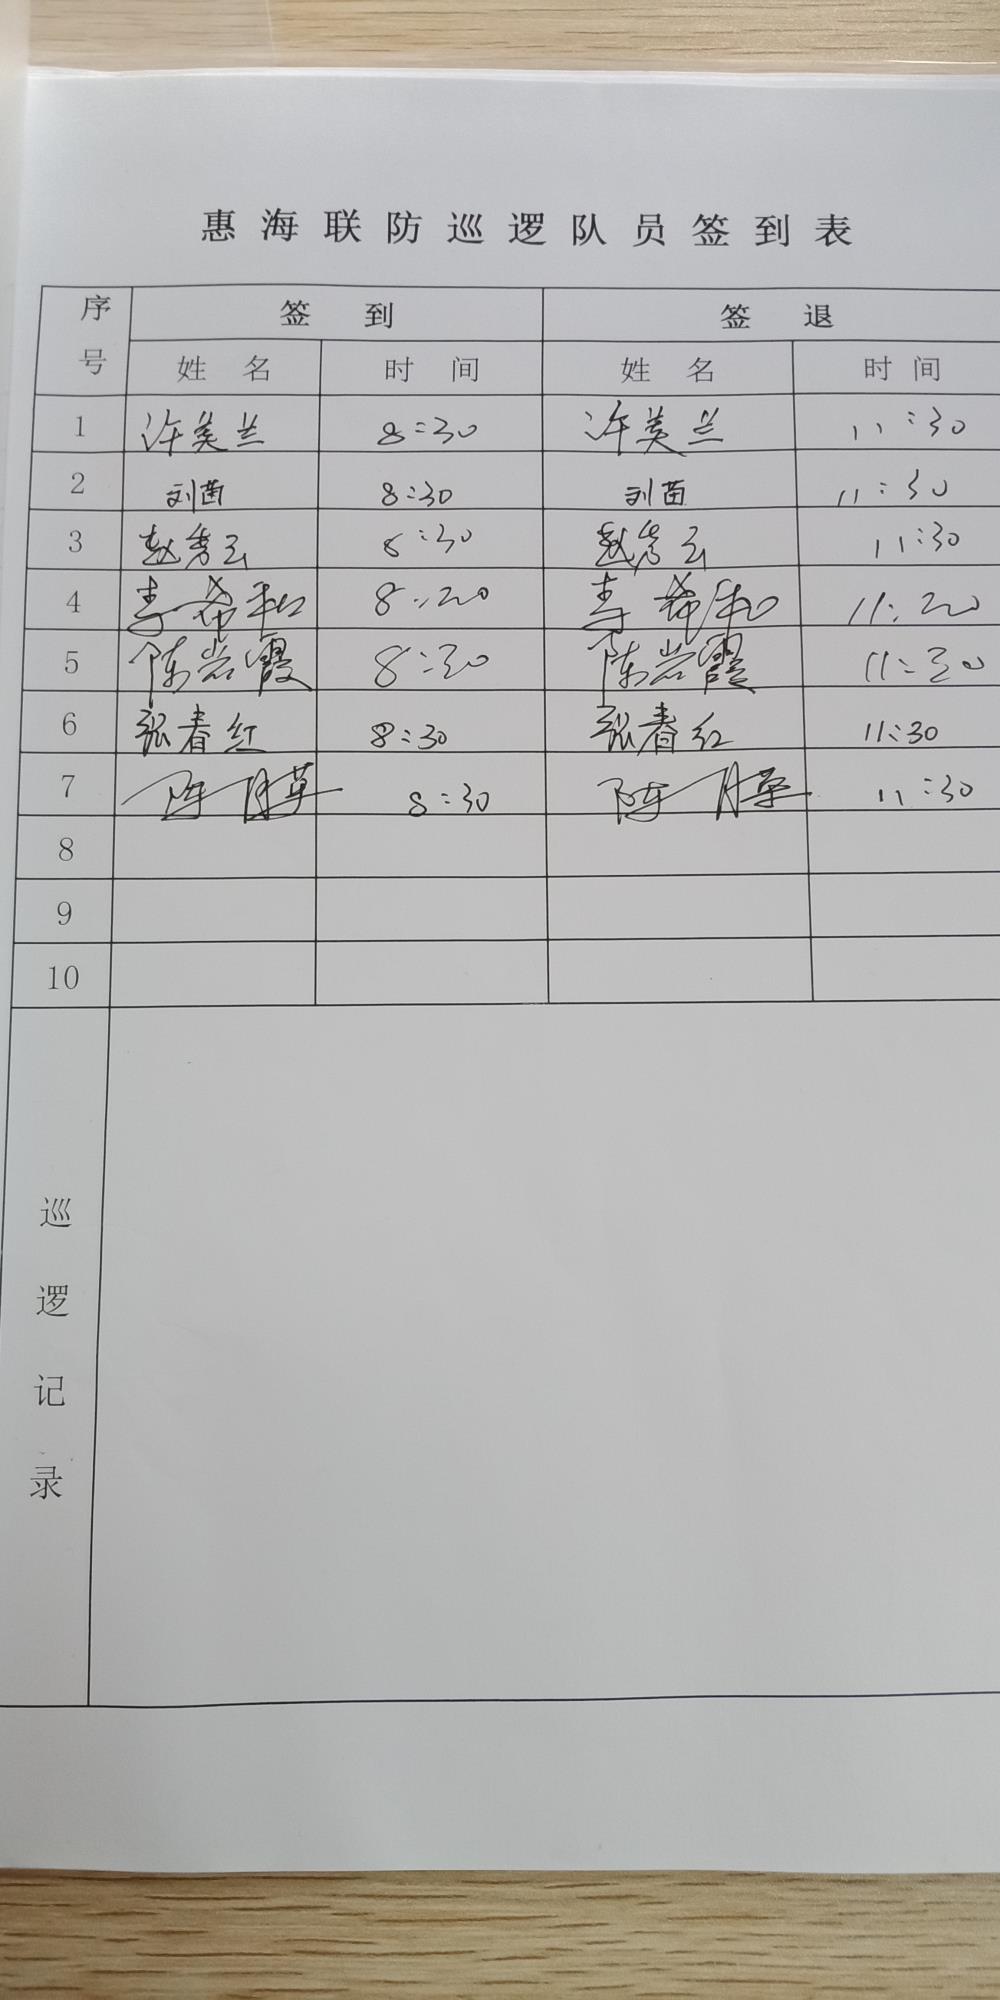 惠海联防巡逻队员签到表
序号 签到 签退
姓名 时间 姓名 时间
1 许美兰 8:30 许美兰 11:30
2 刘茵 8:30 刘苗 11:30
3 赵秀云 8:30 赵秀云 11:30
4 李希和 8:20 李希和 11:20
5 陈岩霞 8:30 陈岩霞 11:30
6 张春红 8:30 张春红 11:30
7 陈月 8:30 陈月 11:30
8
9
10
巡逻记录